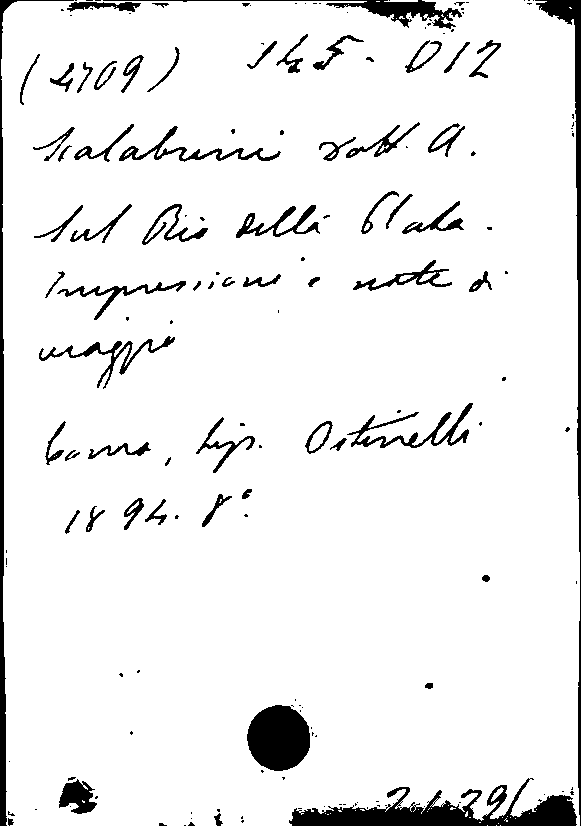 (4709) 145 - D12
Scalabrini dott. A.
Sul Rio della Plata.
Impressioni e note di
viaggio
Como, tip. Ostinelli
1894. 8°.